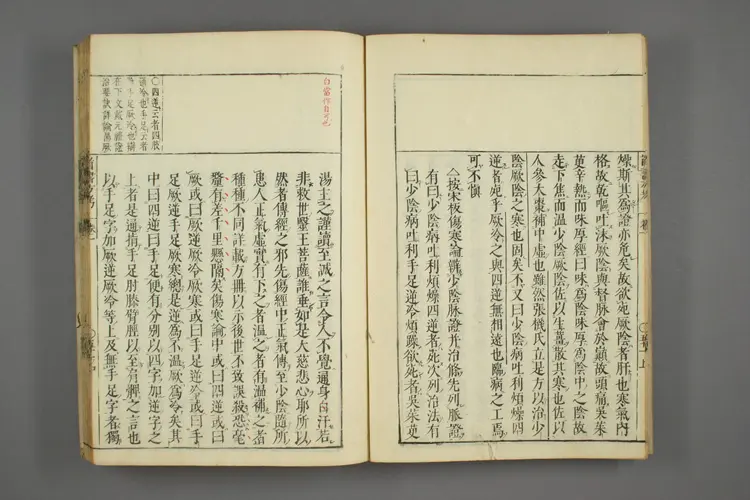 燥斯其為證亦危矣故欲死厥陰者肝也寒氣內
格故乾嘔吐沫厥陰與督脈會於巔故頭痛吳茱
萸辛熱而味厚經曰味為陰味厚為陰中之陰故
走下焦而溫少陰厥陰佐以生薑散其寒也佐以
人參大棗補中虛也雖然張機氏立是方以治少
陰厥陰之寒也固矣不又曰少陰病吐利煩燥四
逆者死乎厥冷之與四逆無相遠也臨病之工焉
可不慎
按宋板傷寒論辨少陰脈證并治條先列脈證
有曰少陰病吐利煩燥四逆者死次列治法有
曰少陰病吐利手足逆冷煩躁欲死者吳茱萸
白當作自可也
湯主之謹讀至誠之言令人不覺通身白汗若
非救世醫王菩薩誰垂如是大慈悲心耶所以
然者傳經之邪先傷經中正氣傳至少陰隨所
患人正氣虛實有下之者溫之者有溫補之者
種種不同詳載方冊以示後世不致誤殺恐毫
釐有差千里懸隔矣傷寒論中或曰四逆或曰
厥或曰厥逆厥冷厥寒或曰手足逆冷或曰手
足厥逆手足厥寒總是逆為不溫厥為冷矣其
中曰四逆曰手足便有分別以四字加逆字之
上者是通指手足肘膝臂脛以至言體之言也
以手足字加厥逆厥冷等上及無手足字者獨
〇四逆云者四肢